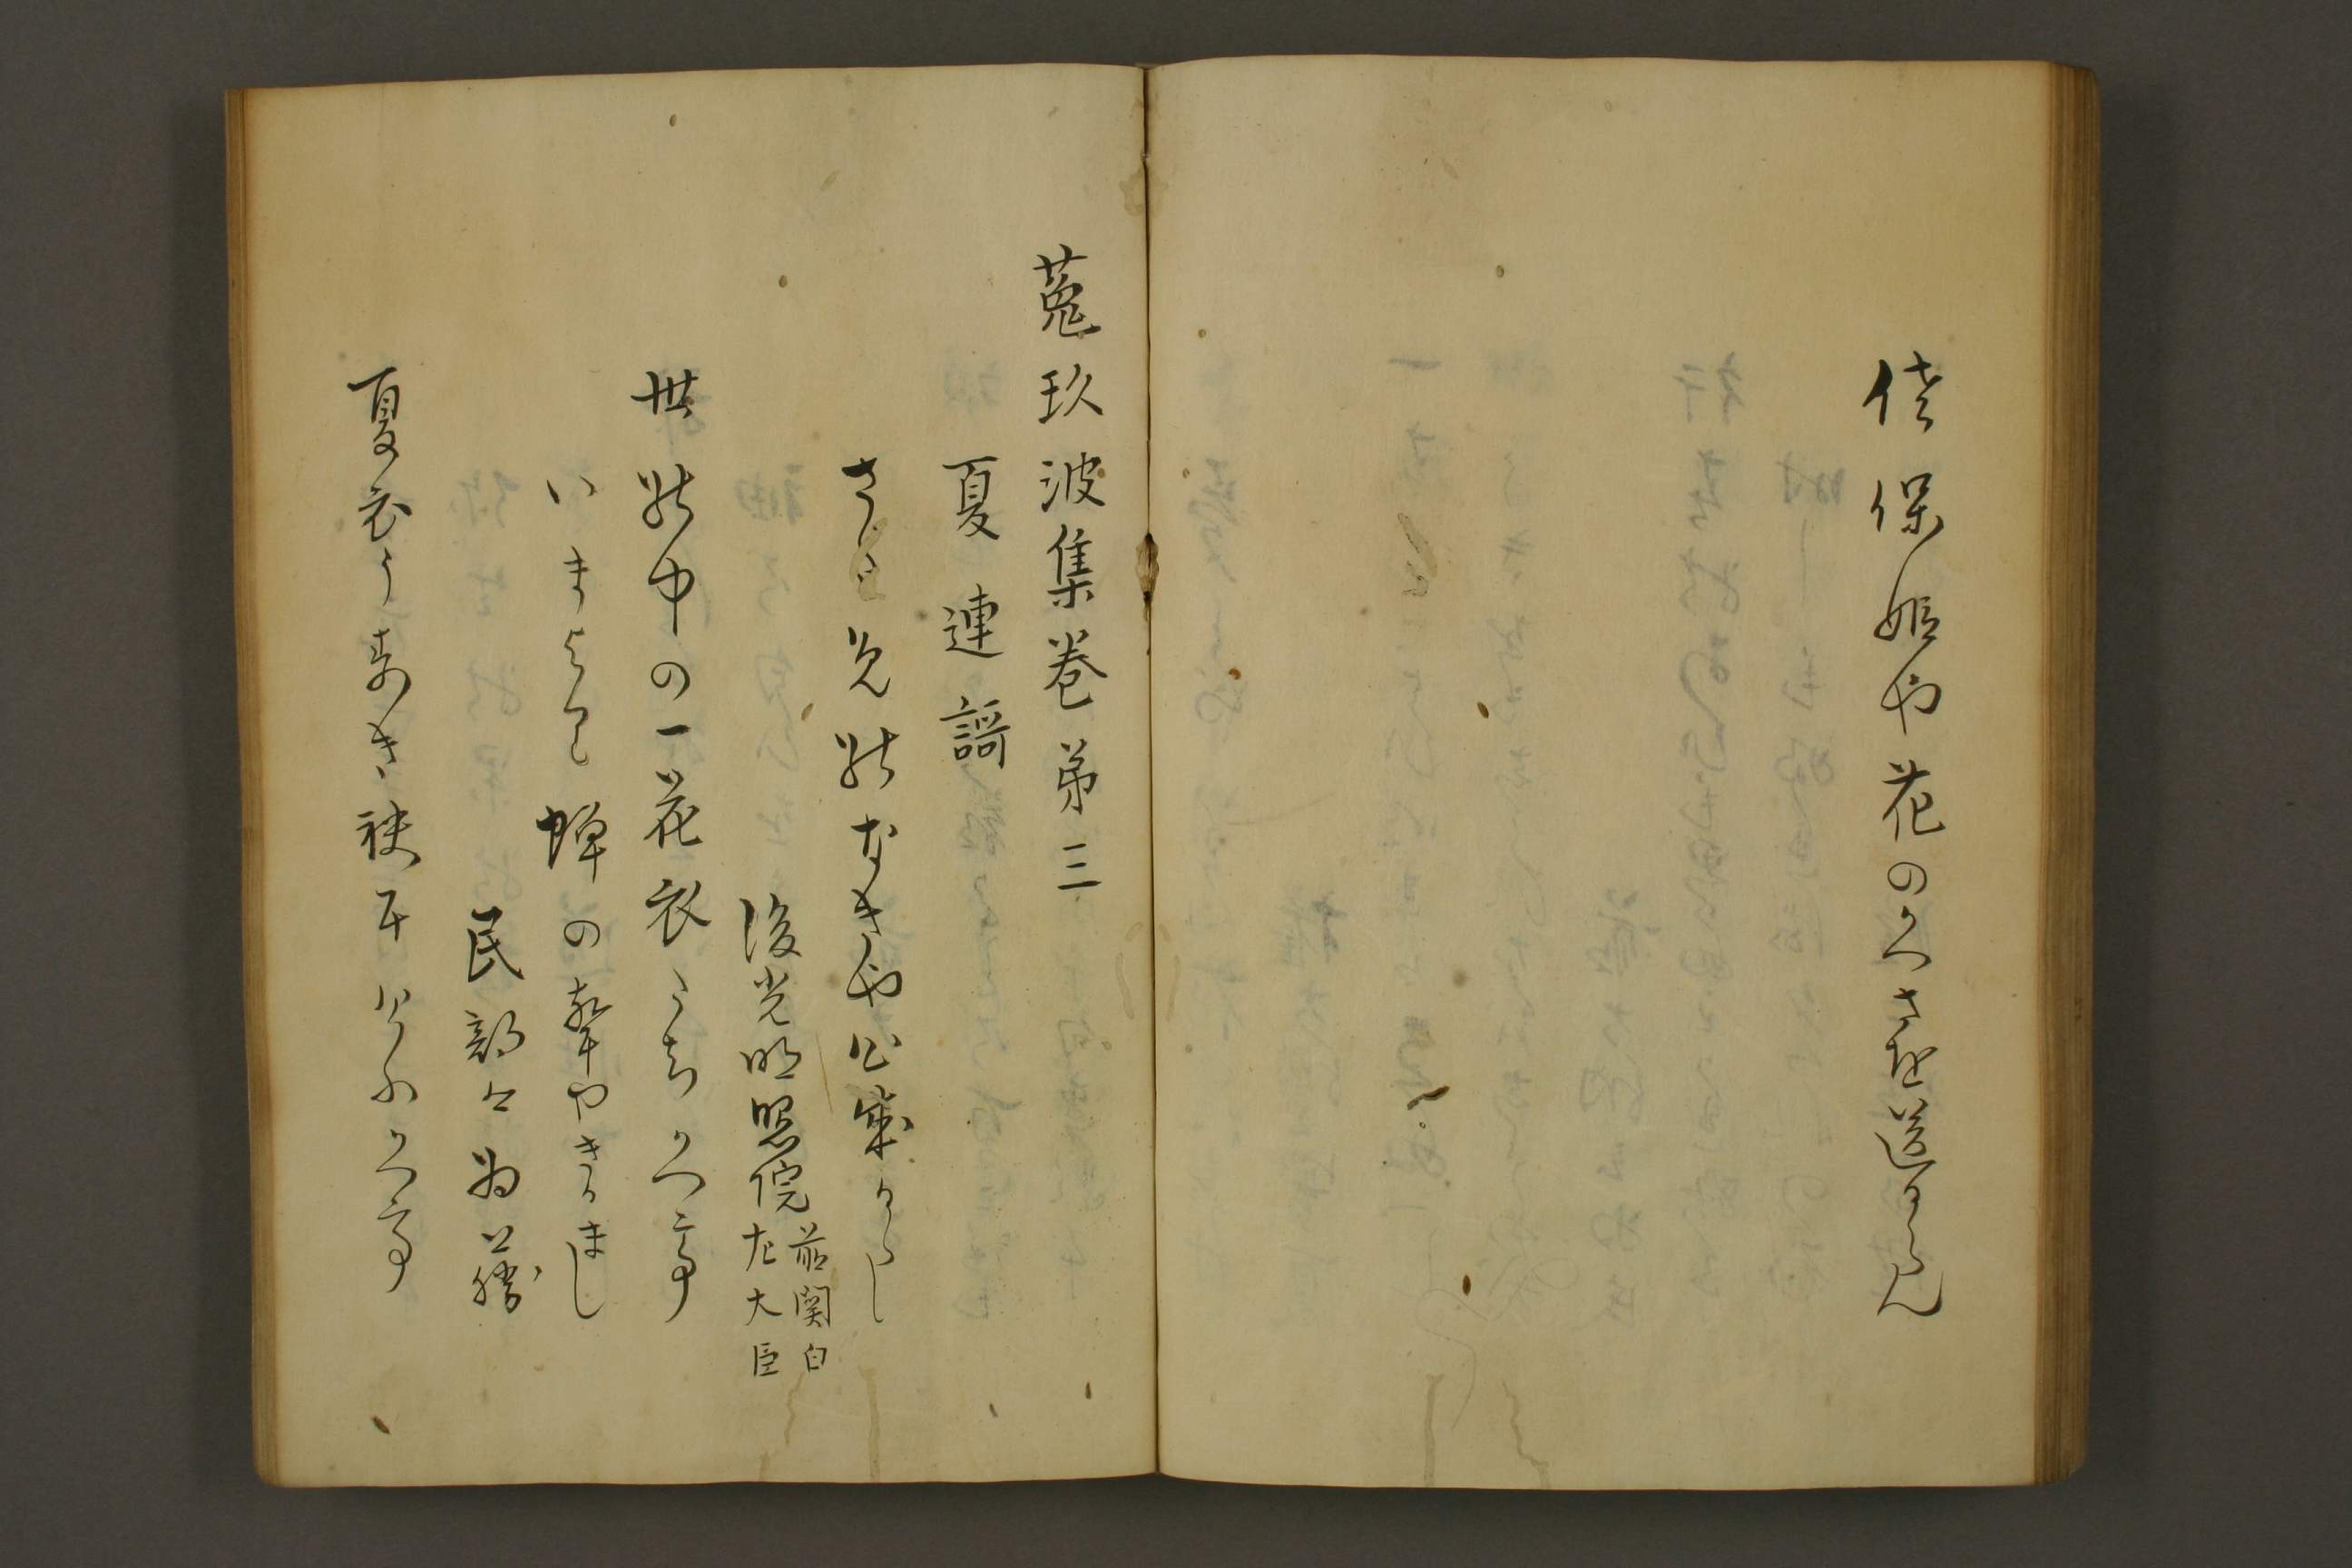 佐保姫や花のかへさを送るらん
菟玖波集巻第三
夏連謌
さためなきや心なるらし
後光明照院前関白左大臣
世中の一花衣たちかへて
いまよりは蝉の声やきかまし
民部卿為藤
夏衣うすき袂にけふかへて